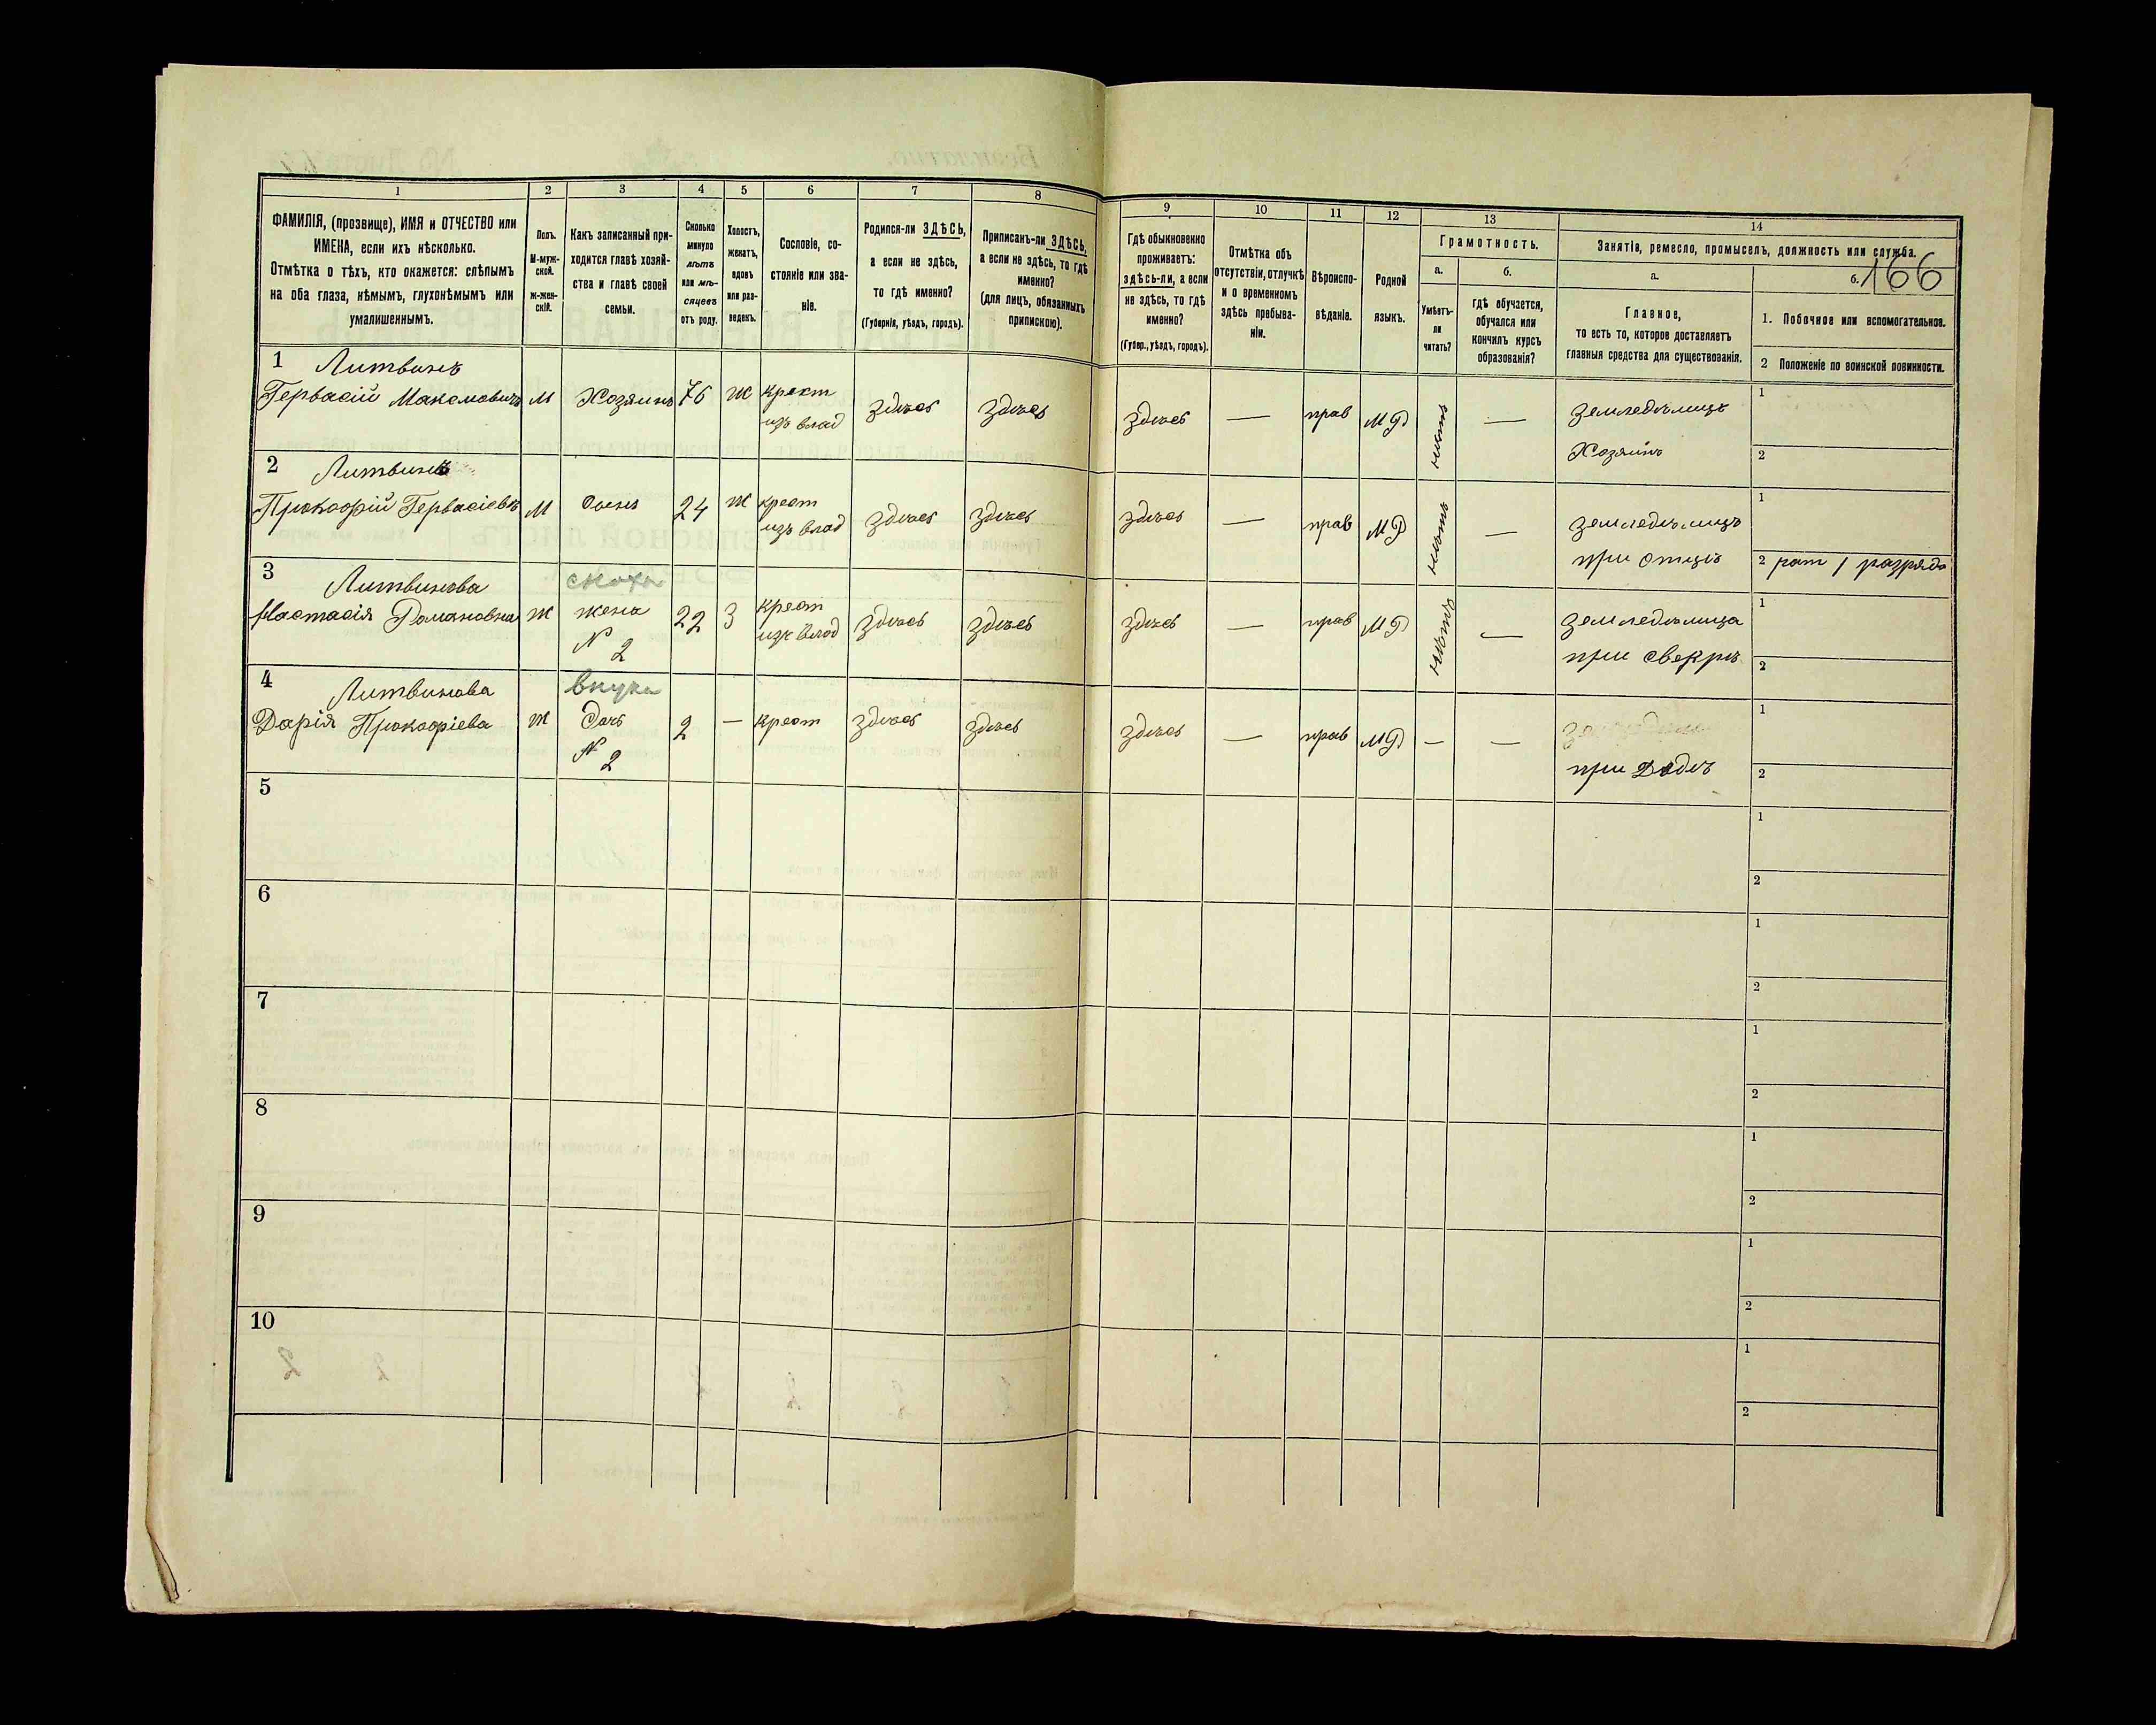 1 2 3 4 5 6 7 8
ФАМИЛІЯ, (прозвище), ИМЯ и ОТЧЕСТВО или
ИМЕНА, если ихъ нѣсколько.
Отмѣтка о тѣхъ, кто окажется: слѣпымъ
на оба глаза, нѣмымъ, глухонѣмымъ или
умалишеннымъ.
Полъ.
М-муж-
ской.
Ж-жен-
скій.
Какъ записанный при-
ходится главѣ хозяй-
ства и главѣ своей
семьи.
Сколько
минуло
лѣтъ
или мѣ-
сяцевъ
отъ роду.
Холостъ,
женатъ,
вдовъ
или раз-
веденъ.
Сословіе, со-
стояніе или зва-
ніе.
Родился-ли ЗДѢСЬ,
а если не здѣсь,
то гдѣ именно?
(Губернія, уѣздъ, городъ).
Приписанъ-ли ЗДѢСЬ,
а если не здѣсь, то гдѣ
именно?
(для лицъ, обязанныхъ
припискою).
9 10 11 12 13 14
Гдѣ обыкновенно
проживаетъ:
здѣсь-ли, а если
не здѣсь, то гдѣ
именно?
(Губер., уѣздъ, городъ).
Отмѣтка объ
отсутствіи, отлучкѣ
и о временномъ
здѣсь пребыва-
ніи.
Вѣроиспо-
вѣданіе.
Родной
языкъ.
Грамотность.
а. б.
Умѣетъ-
ли
читать?
гдѣ обучается,
обучался или
кончилъ курсъ
образованія?
Занятіе, ремесло, промыселъ, должность или служба.
а. б. 166
Главное,
то есть то, которое доставляетъ
главныя средства для существованія.
1. Побочное или вспомогательное.
2 Положеніе по воинской повинности.
1 Литвинъ
Гервасій Максмовичъ М Хозяинъ 76 Ж крест изъ влад здѣсь здѣсь здѣсь — прав МР нѣтъ — земледѣлецъ 1
Хозяинъ 2
2 Литвинъ
Прокофій Гервасіевъ М Сынъ 24 Ж крест изъ влад здѣсь здѣсь здѣсь — прав МР нѣтъ — земледѣлецъ 1
при отцѣ 2 рат 1 разряда
3 Литвинова сноха
Настасія Романовна Ж жена 22 З крест изъ влад здѣсь здѣсь здѣсь — прав МР нѣтъ — земледѣлица 1
N 2 при свекрѣ 2
4 Литвинова внука
Дарія Прокофіева Ж Дочь 2 — крест здѣсь здѣсь здѣсь — прав МР — — 1
N 2 при Дѣдѣ 2
5 1
2
6 1
2
7 1
2
8 1
2
9 1
2
10 1
2